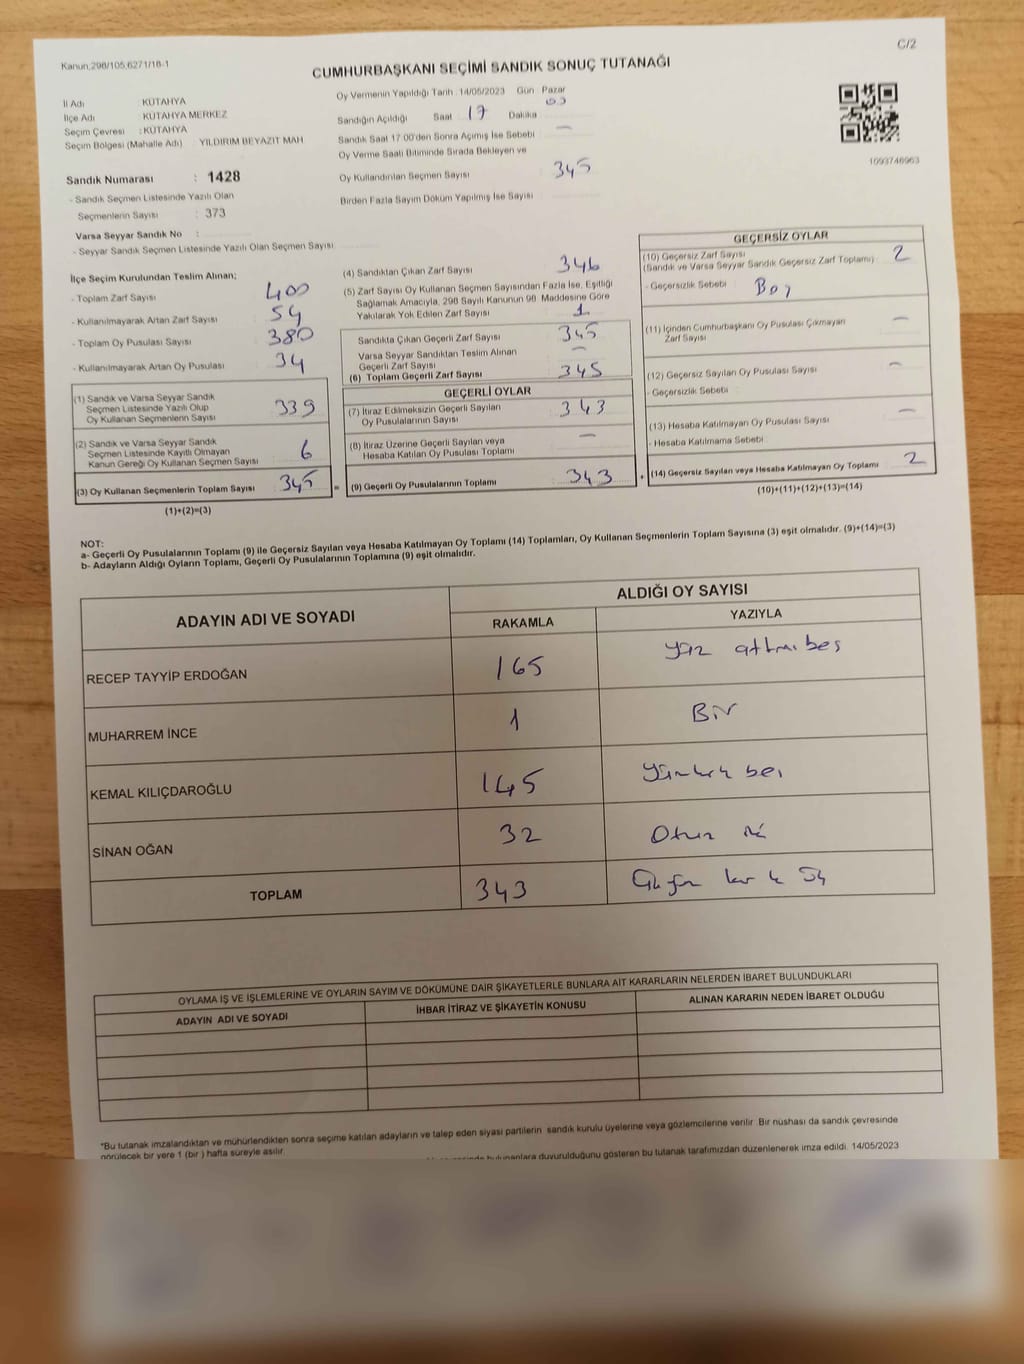 C/2
Kanun,298/105,6271/18-1
CUMHURBAŞKANI SEÇİMİ SANDIK SONUÇ TUTANAĞI
İl Adı : KÜTAHYA
İlçe Adı : KÜTAHYA MERKEZ
Seçim Çevresi : KÜTAHYA
Seçim Bölgesi (Mahalle Adı) YILDIRIM BEYAZIT MAH
Sandık Numarası : 1428
- Sandık Seçmen Listesinde Yazılı Olan
Seçmenlerin Sayısı : 373
Varsa Seyyar Sandık No :
- Seyyar Sandık Seçmen Listesinde Yazılı Olan Seçmen Sayısı
Oy Vermenin Yapıldığı Tarih :14/05/2023 Gün Pazar
Sandığın Açıldığı Saat 17 Dakika
Sandık Saat 17:00'den Sonra Açmış İse Sebebi —
Oy Verme Saati Bitiminde Sırada Bekleyen ve
Oy Kullandırılan Seçmen Sayısı 345
Birden Fazla Sayım Döküm Yapılmış İse Sayısı
1093746963
İlçe Seçim Kurulundan Teslim Alınan;
- Toplam Zarf Sayısı 400
- Kullanılmayarak Artan Zarf Sayısı 54
- Toplam Oy Pusulası Sayısı 380
- Kullanılmayarak Artan Oy Pusulası 34
(1) Sandık ve Varsa Seyyar Sandık
Seçmen Listesinde Yazılı Olup
Oy Kullanan Seçmenlerin Sayısı 339
(2) Sandık ve Varsa Seyyar Sandık
Seçmen Listesinde Kayıtlı Olmayan
Kanun Gereği Oy Kullanan Seçmen Sayısı 6
(3) Oy Kullanan Seçmenlerin Toplam Sayısı 345 =
(1)+(2)=(3)
(4) Sandıktan Çıkan Zarf Sayısı 346
(5) Zarf Sayısı Oy Kullanan Seçmen Sayısından Fazla İse, Eşitliği
Sağlamak Amacıyla, 298 Sayılı Kanunun 98. Maddesine Göre
Yakılarak Yok Edilen Zarf Sayısı 1
Sandıkta Çıkan Geçerli Zarf Sayısı 345
Varsa Seyyar Sandıktan Teslim Alınan
Geçerli Zarf Sayısı —
(6) Toplam Geçerli Zarf Sayısı 345
GEÇERLİ OYLAR
(7) İtiraz Edilmeksizin Geçerli Sayılan
Oy Pusulasının Sayısı 343
(8) İtiraz Üzerine Geçerli Sayılan veya
Hesaba Katılan Oy Pusulası Toplamı —
(9) Geçerli Oy Pusulalarının Toplamı 343 +
GEÇERSİZ OYLAR
(10) Geçersiz Zarf Sayısı
(Sandık ve Varsa Seyyar Sandık Geçersiz Zarf Toplamı) 2
- Geçersizlik Sebebi Boş
(11) İçinden Cumhurbaşkanı Oy Pusulası Çıkmayan
Zarf Sayısı —
(12) Geçersiz Sayılan Oy Pusulası Sayısı —
- Geçersizlik Sebebi
(13) Hesaba Katılmayan Oy Pusulası Sayısı —
- Hesaba Katılmama Sebebi
(14) Geçersiz Sayılan veya Hesaba Katılmayan Oy Toplamı 2
(10)+(11)+(12)+(13)=(14)
NOT:
a- Geçerli Oy Pusulalarının Toplamı (9) ile Geçersiz Sayılan veya Hesaba Katılmayan Oy Toplamı (14) Toplamları, Oy Kullanan Seçmenlerin Toplam Sayısına (3) eşit olmalıdır. (9)+(14)=(3)
b- Adayların Aldığı Oyların Toplamı, Geçerli Oy Pusulalarının Toplamına (9) eşit olmalıdır.
ADAYIN ADI VE SOYADI ALDIĞI OY SAYISI
RAKAMLA YAZIYLA
RECEP TAYYİP ERDOĞAN 165 yüz altmışbeş
MUHARREM İNCE 1 Bir
KEMAL KILIÇDAROĞLU 145 yüzkırk beş
SİNAN OĞAN 32 Otuz iki
TOPLAM 343 üç
OYLAMA İŞ VE İŞLEMLERİNE VE OYLARIN SAYIM VE DÖKÜMÜNE DAİR ŞİKAYETLERLE BUNLARA AİT KARARLARIN NELERDEN İBARET BULUNDUKLARI
ADAYIN ADI VE SOYADI İHBAR İTİRAZ VE ŞİKAYETİN KONUSU ALINAN KARARIN NEDEN İBARET OLDUĞU
*Bu tutanak imzalandıktan ve mühürlendikten sonra seçime katılan adayların ve talep eden siyasi partilerin sandık kurulu üyelerine veya gözlemcilerine verilir. Bir nüshası da sandık çevresinde
görülecek bir yere 1 (bir ) hafta süreyle asılır.
bulunanlara duyurulduğunu gösteren bu tutanak tarafımızdan düzenlenerek imza edildi. 14/05/2023